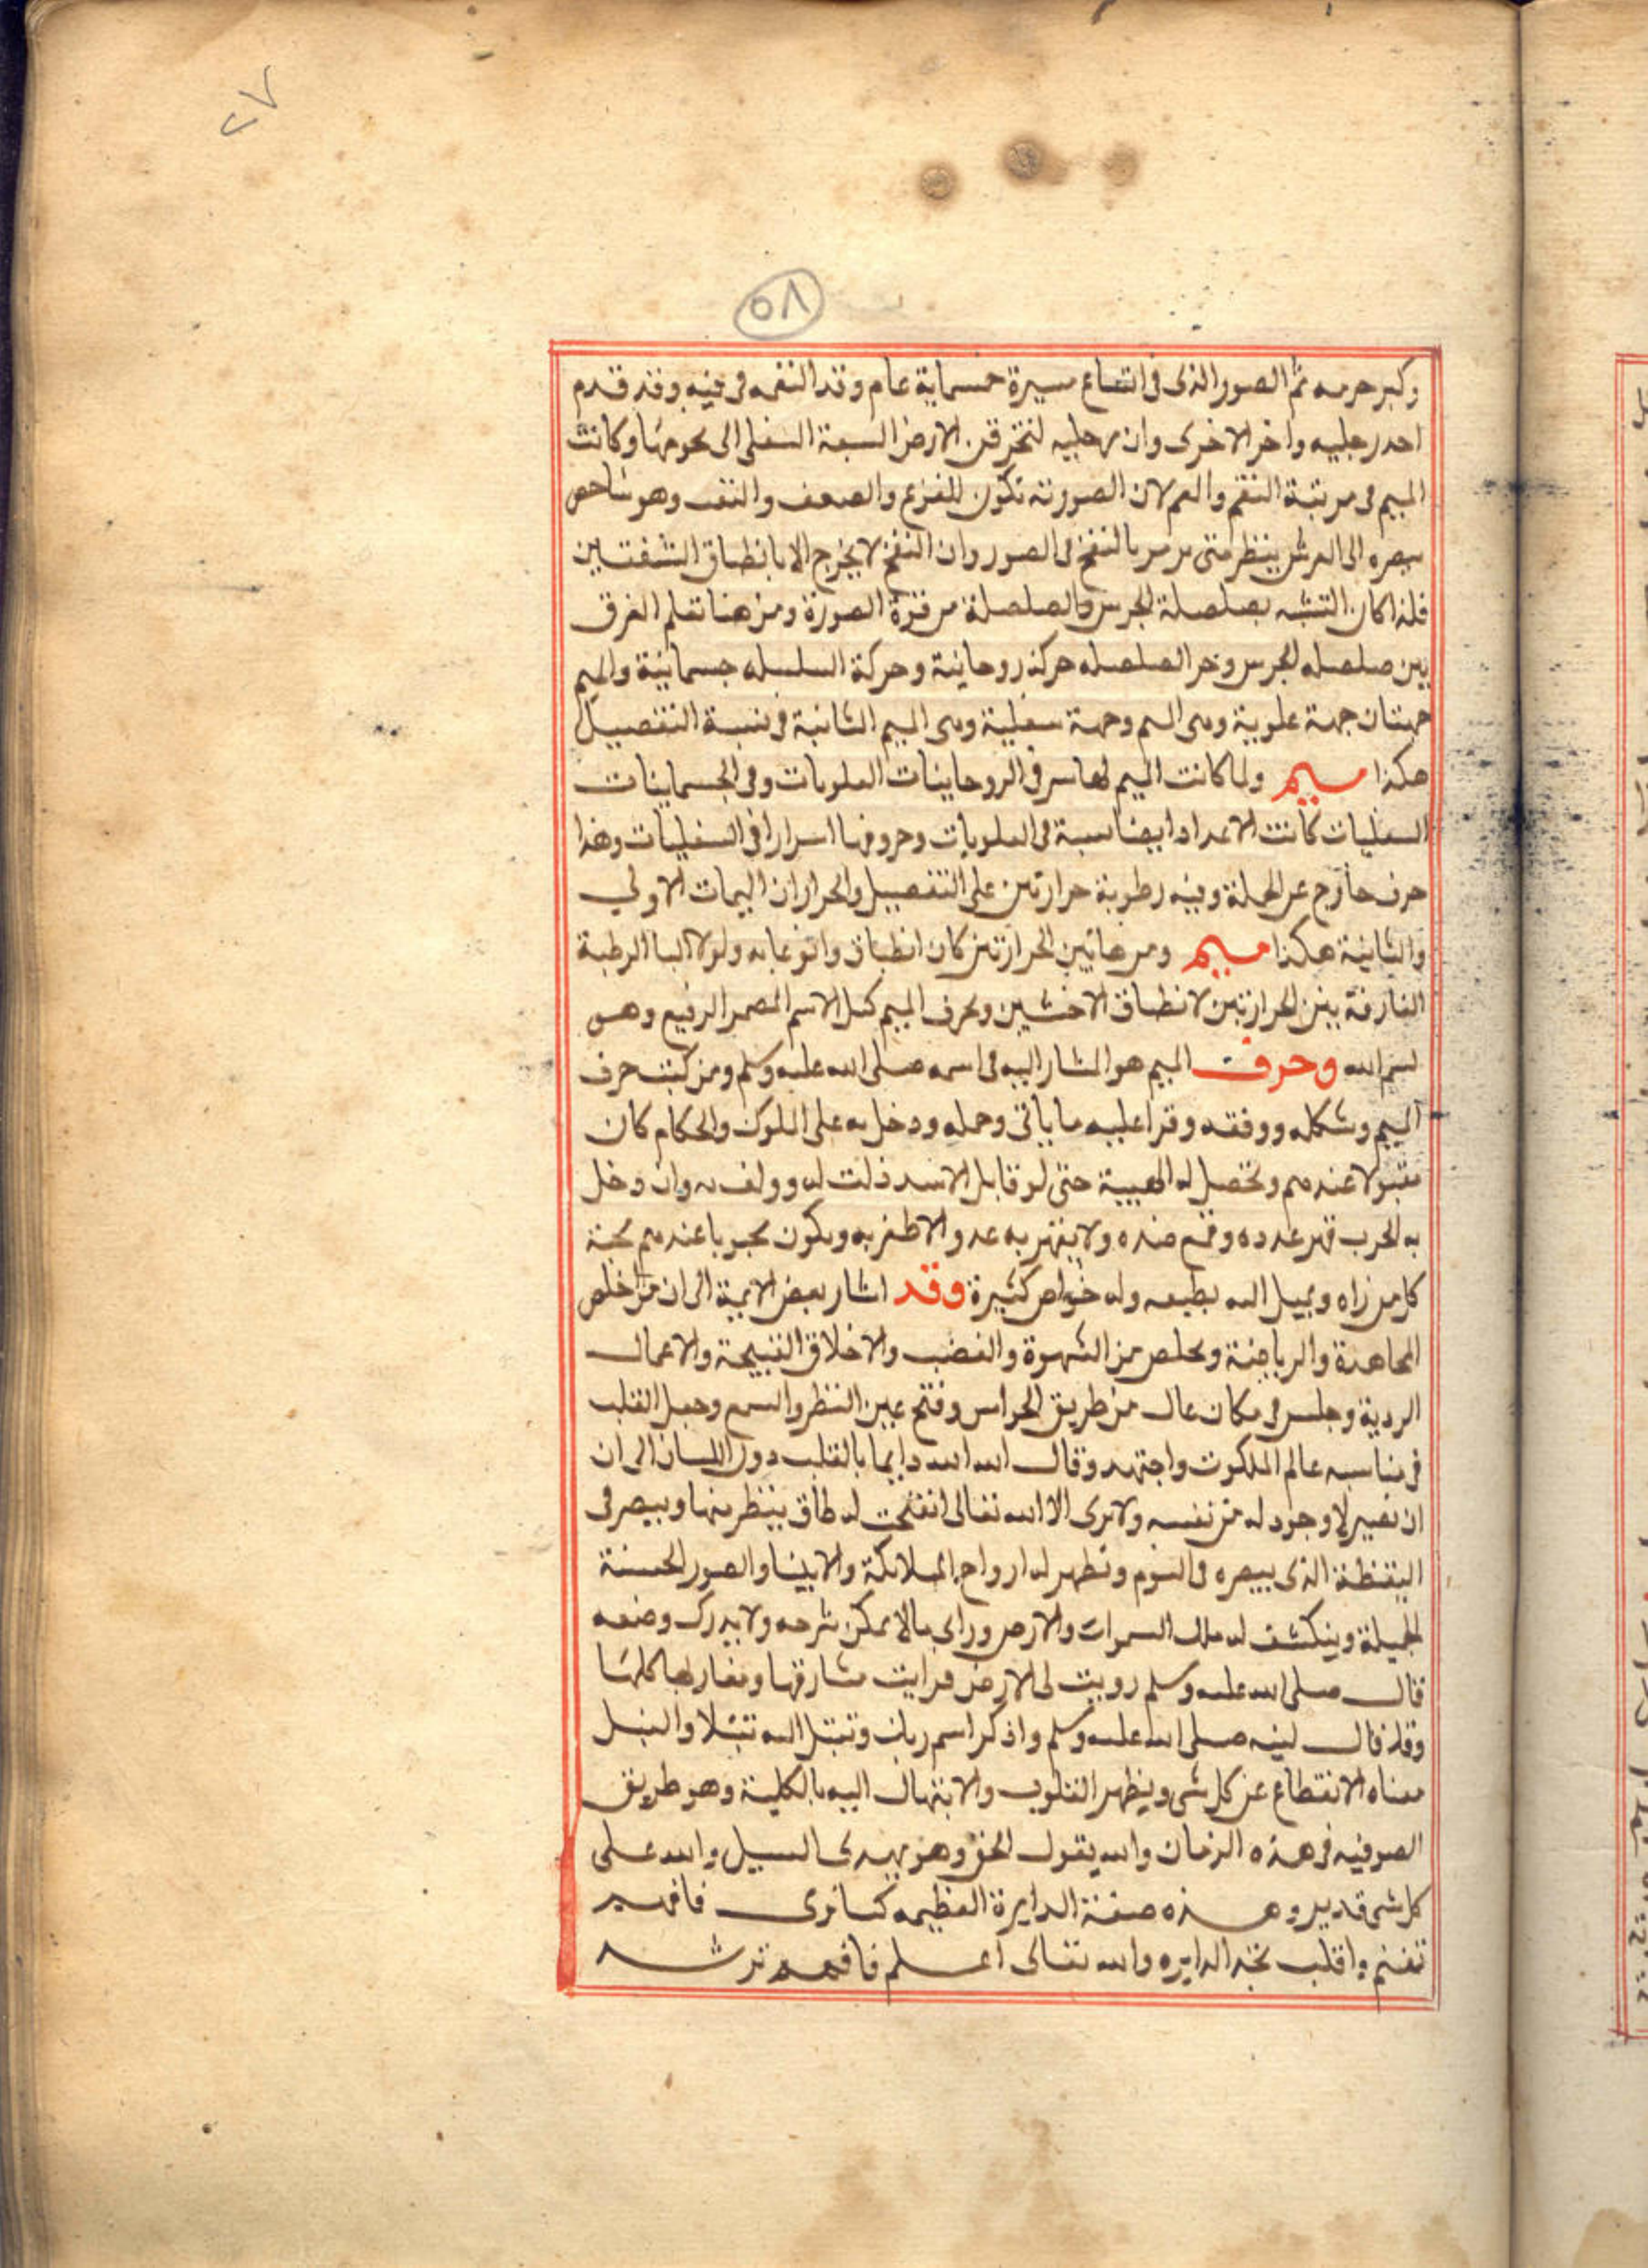 ٢٧
٥٨
وكبر جرمه ثم الصور الذى فى اتساع مسيرة خمسماية عام وقد التقمه فى فيه وقد قدم
احد رجليه واخر الاخرى وان رجليه لتخرقن الارض السبعة السفلى الى نحومها وكانت
الميم فى مرتبة التقم والفم لان الصورته تكون للفزع والصعف والنف وهو شاخص
ببصره الى العرش ينتظر متى يومر بالنفخ فى الصور وان النفخ لا يخرج الا بانطباق الشفتين
فلذا كان التشبه بصلصلة الجرس والصلصلة من قوة الصورة ومن هنا تعلم الفرق
بين صلصله الجرس وجر الصلصله حركة روحانية وحركة السلسله جسمانية والميم
جهتان جهة علوية وهى الميم وجهة سفلية وهى الميم الثانية فى نسبة التفصيل
هكذا ميم ولما كانت الميم لها سر فى الروحانيات العلويات وفى الجسمانيات
السفليات كانت الاعداد ايضا سبة فى العلويات وحروفها اسرارا فى السفليات وهذا
حرف خارج عن الجملة وفيه رطوبة حرارتين على التفصيل والحراران الميمات الاولى
والثانية هكذا ميم ومن هاتين الحرارتين كان انطباق وانوعابه ولولا اليا الرطبة
الفارقة بين الحرارتين لانطباق الاخشبين وبحرف الميم كمل الاسم المضمر الرفيع وهو
بسم الله وحرف الميم هو المشار اليه فى اسمه صلى الله عليه وسلم ومن كتب حرف
الميم وشكله ووفقه وقرا عليه ما ياتى وحمله ودخل به على الملوك والحكام كان
مقبولا عندهم وتحصل له الهيبة حتى لو قابل الاسد ذلت له وولف به وان دخل
به الحرب قهر عدده وقمع ضده ولا يقهر به عدو الا ظفر به ويكون محبوبا عندهم محبة
كل من راه ويميل اليه بطبعه وله خواص كثيرة وقد اشار بعض الايمة الى ان من اخلص
المجاهدة والرياضة وتخلص من الشهوة والغضب والاخلاق القبيحة والاعمال
الردية وجلس فى مكان عال من طريق الحواس وفتح عين النظر والسمع وجعل القلب
فى مناسبه عالم الملكوت واجتهد وقال الله الله دايما بالقلب دون اللسان الى ان
ان يصير لا وجود له من نفسه ولا يرى الا الله تعالى انفتحت له طاق ينظر منها ويبصر فى
اليقظة الذى يبصره فى النوم وتظهر له ارواح الملائكة والانبيا والصور الحسنة
الجميلة وينكشف له ملك السموات والارض وراى ما لا يمكن شرحه ولا يدرك وصفه
قال صلى الله عليه وسلم رويت لى الارض فرايت مشارقها ومغاربها كلها
وقد قال لنبيه صلى الله عليه وسلم واذكر اسم ربك وتبتل اليه تبتيلا والتبتل
معناه الانقطاع عن كل شى ويظهر القلوب والابتهال اليه بالكلية وهو طريق
الصوفيه فى هذه الزمان والله يقول الحق وهو يهدى السبيل والله على
كل شى قدير وهذه صفة الدايرة العظيمه كما ترى فافهم
تغنم واقلب تجد الدايره والله تعالى اعلم فافهم ترشد